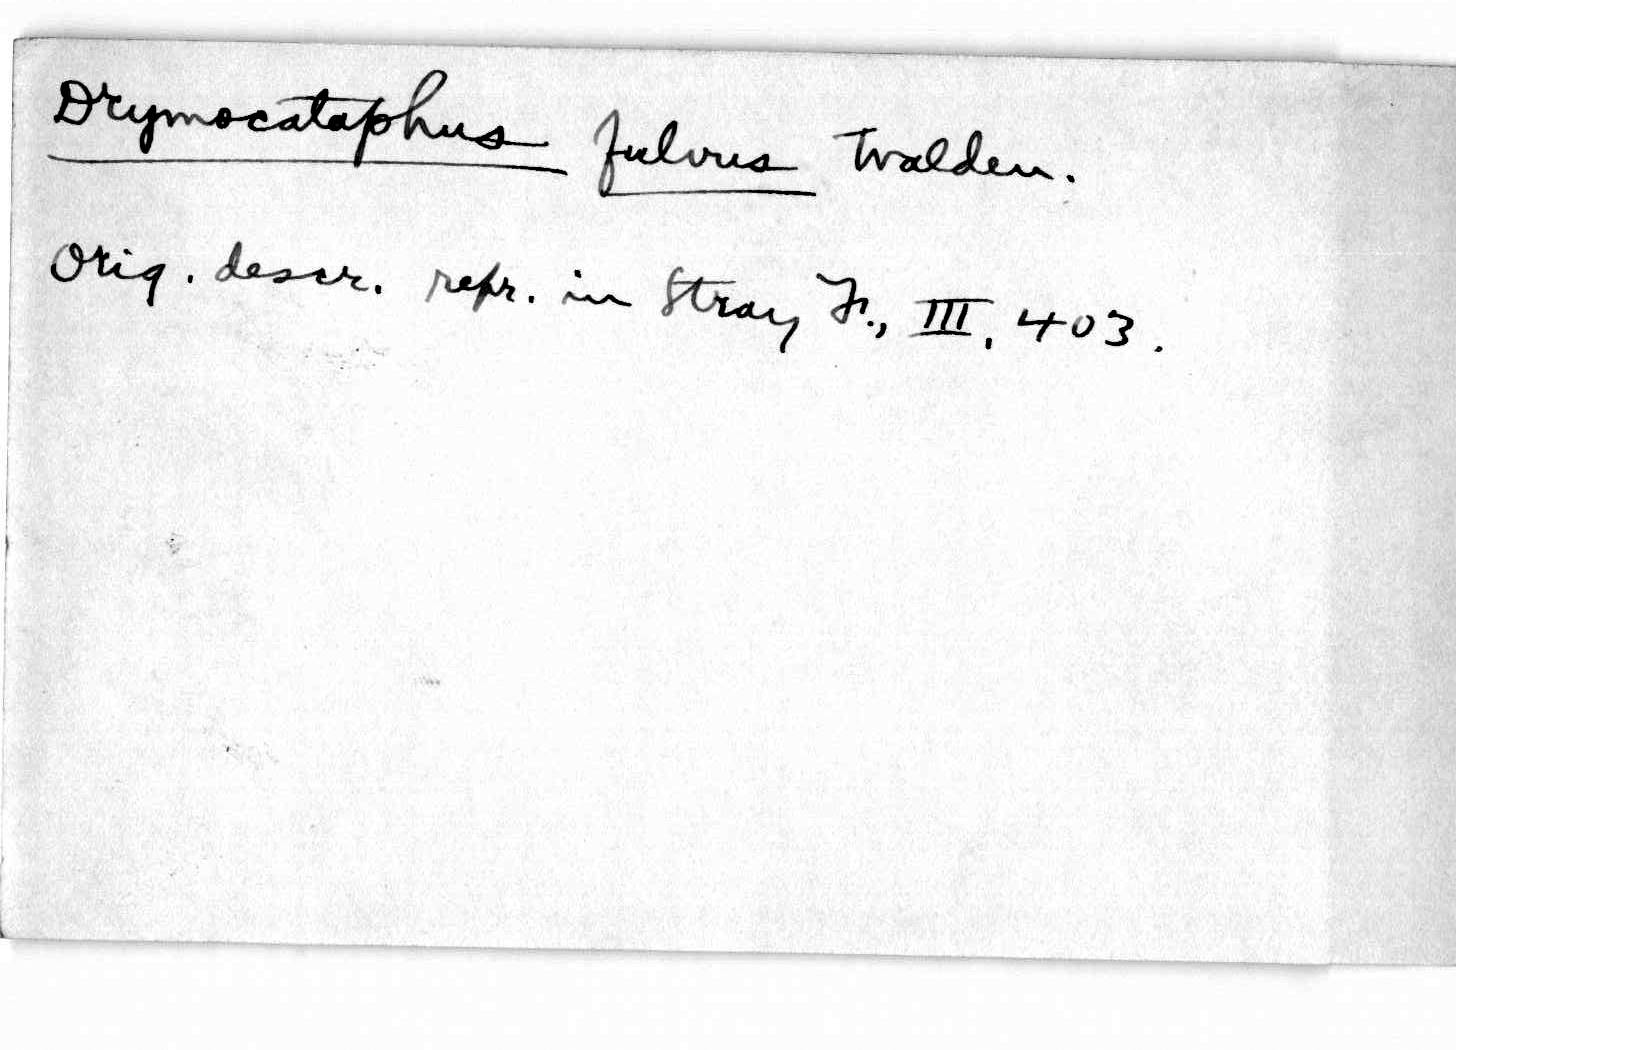 Drymocataphus fulvus Walden.
Orig. descr. repr. in Stray F., III, 403.